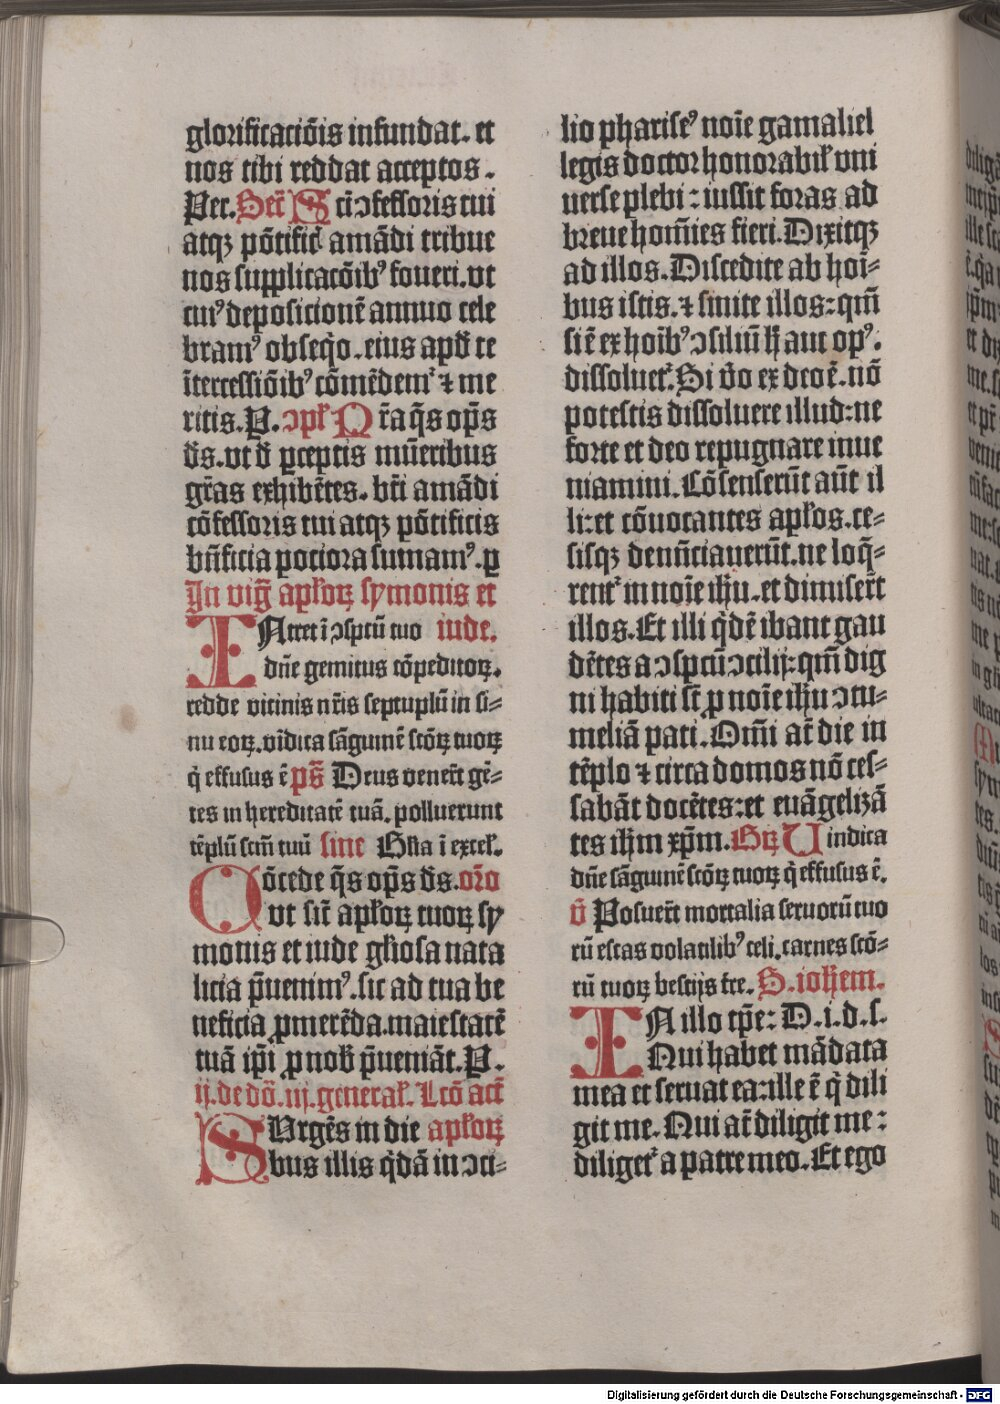 glorificaciōis infundat. et
nos tibi reddat acceptos.
Per. Secr̄ Scī ↄfessoris tui
atqꝫ pōtific̄ amādi tribue
nos supplicacōibꝰ foueri. vt
cuiꝰ deposicionē annuo cele
bramꝰ obseqͦ. eius apd̄ te
ītercessiōibꝰ cōmēdemᷣ ⁊ me
ritis. P. ↄpłꝰ Or̄a q̄s op̄s
ds̄. vt ꝓ pceptis mūeribus
gr̄as exhibētes. bt̄i amādi
cōfessoris tui atqꝫ pōtificis
bn̄ficia pociora sumamꝰ. p
In viḡ apłoꝝ symonis et
INtret ī ↄspctū tuo iude.
dn̄e gemitus cōpeditoꝝ.
redde vicinis nr̄is septuplū in si-
nu eoꝝ. vīdica sāguinē sctōꝝ tuoꝝ
q̇ effusus ē ps̄ Deus vener̄t gē-
tes in hereditatē tuā. polluerunt
tēplū sctm̄ tuū sine Gła ī excel̄.
Oōcede q̄s op̄s ds̄. or̄o
vt sic̄ apłoꝝ tuoꝝ sy
monis et iude głiosa nata
licia p̄uenimꝰ. sic ad tua be
neficia ꝓmerēda. maiestatē
tuā ip̄i ꝓ nob̄ p̄ueniāt. P.
ij. de dō. iij. general̄. Lcō actꝰ
SUrgēs in die apłoꝝ
bus illis q̇dā in ↄci-
lio phariseꝰ noīe gamaliel
legis doctor honorabił vni
uerse plebi: iussit foras ad
breue hoīes fieri. Dixitqꝫ
ad illos. Discedite ab hoī-
bus istis. ⁊ sinite illos: qm̄
si ē ex hoībꝰ ↄsiliū h̄ aut opꝰ.
dissoluetᷣ. Si v̄o ex deo ē. nō
potestis dissoluere illud: ne
forte et deo repugnare inue
niamini. Cōsenserūt aūt il
li: et cōuocantes apłos. ce-
sisqꝫ denūciauerūt. ne loq̄-
rentᷣ in noīe ih̄u. et dimiser̄t
illos. Et illi q̇dē ibant gau
dētes a ↄspctū ↄcilij: qm̄ dig
ni habiti st̄ ꝓ noīe ih̄u ↄtu-
meliā pati. Om̄i at̄ die in
tēplo ⁊ circa domos nō ces-
sabāt docētes: et euāgelizā
tes ih̄m xp̄m. Grꝝ Uindica
dn̄e sāguinē sctōꝝ tuoꝝ q̇ effusus ē.
v̄ Posuer̄t mortalia seruorū tuo
rū escas volatilibꝰ celi. carnes sctō-
rū tuoꝝ bestijs tr̄e. S. ioħem.
IN illo tp̄e: D. i. d. s.
Qui habet mādata
mea et seruat ea: ille ē q̇ dili
git me. Qui at̄ diligit me:
diligetᷣ a patre meo. Et ego